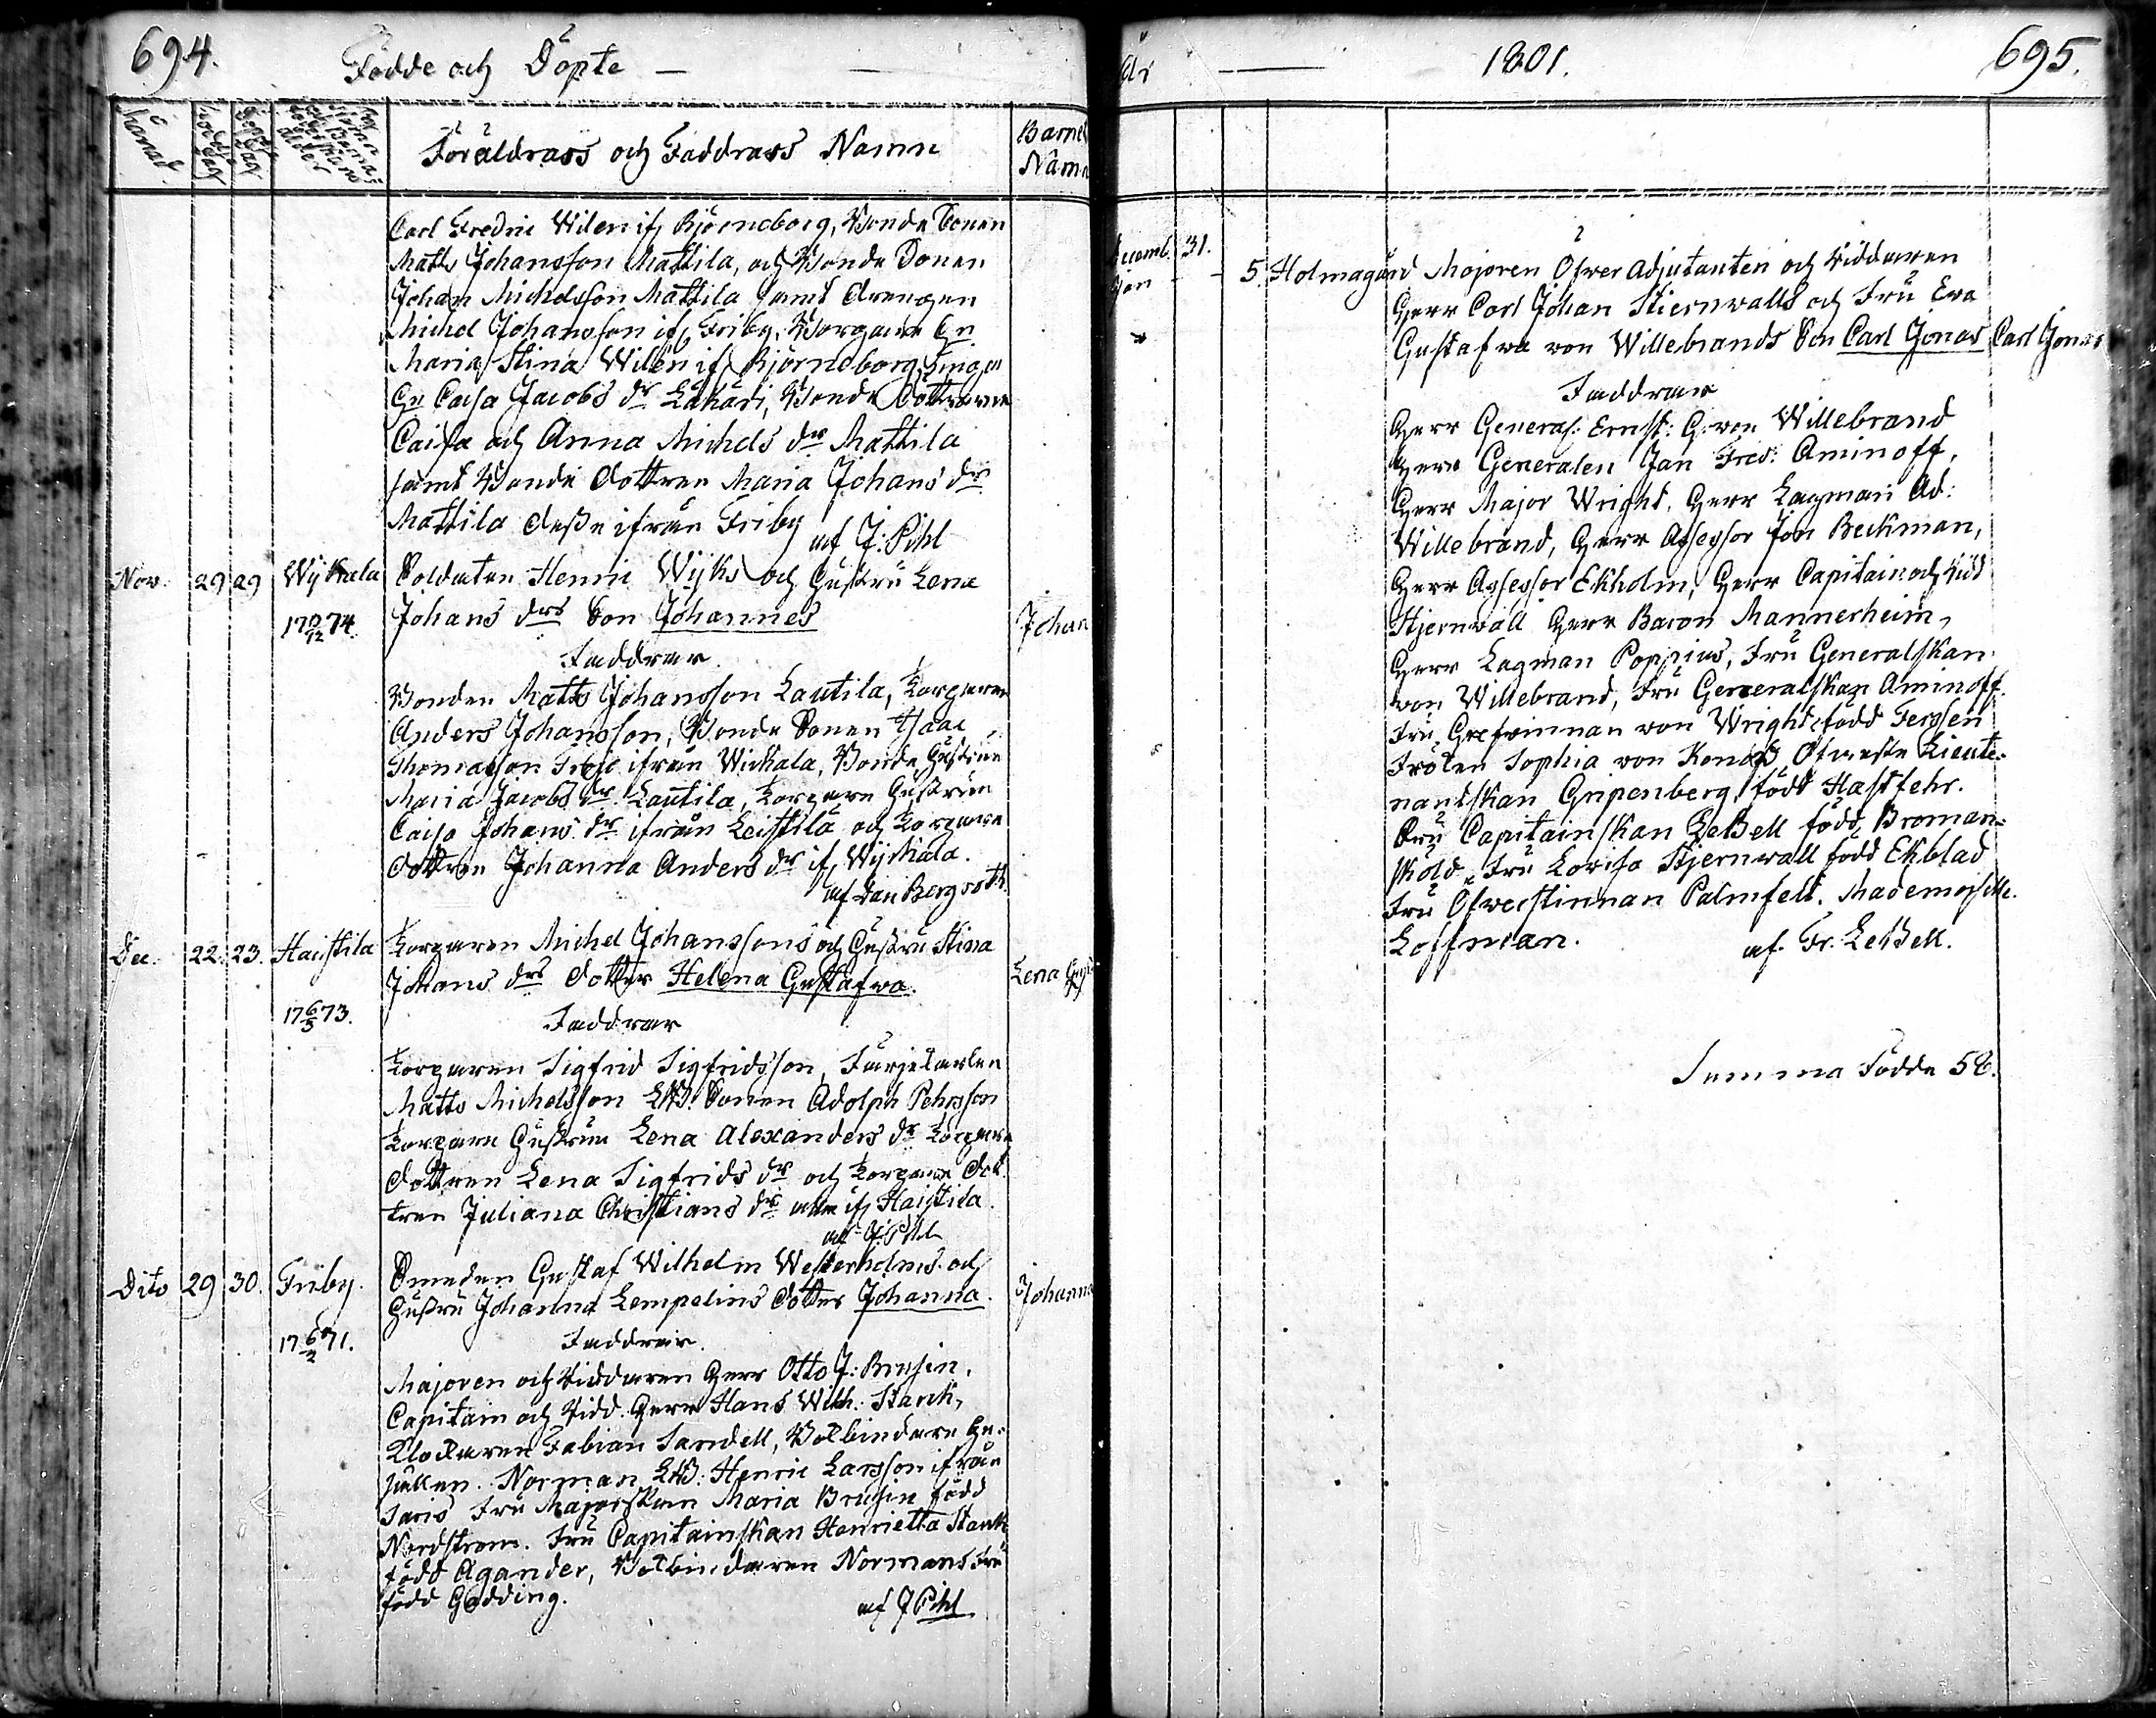 694.
Födde och Döpte
Föräldrars och Faddrars Namn
Barnets
Namn
Carl Fredric Wilen if. Björneborg, Bonde Sonen
Matts Johansson Mattila, och Bonde Sonen
Johan Michelsson Mattila samt Drengen
Michel Johansson if. Friby, Borgare
Maria Stina Wilen if. Björneborg,
Caisa Jacobs dr Lähäri, Bonde Döttrarne
Caisa och Anna Michels dr Mattila
samt Bonde Dottren Maria Johans dr
Mattila desse ifrån Friby
af J: Pihl
Nov. 29 29 Wijkala Soldaten Henric Wijks och Hustru Lena
17 74. Johans drs Son Johannes
Johan
Faddrar.
Bonden Matts Johansson Lautila, Torparen
Anders Johansson, Bonde Sonen Isaac
Thomasson ifrån Wickala, Bonde Hustrun
Maria Jacobs dr Lautila, Torpare Hustrun
Caisa Johans dr ifrån Leistilä och Torpare
Dottren Johanna Anders dr if. Wijkala.
af Dan Bergroth
Dec. 22. 23. Haistila Torparen Michel Johanssons och Hustru Stina
Johans drs Dotter Helena Gustafwa.
Lena
17 6/3 73.
Faddrar
Torparen Sigfrid Sigfridsson, Färjekarlen
Matts Michelsson Sonen Adolph Pehrsson
Torpare Hustrun Lena Alexanders dr Torpare
Dottren Lena Sigfrids dr och Torpare Dot
tren Juliana Christians dr alla if. Haistila
af J: Pihl
Dito 29 30. Friby. Smeden Gustaf Wilhelm Westerholms och
Hustru Johanna Lempelins Dotter Johanna.
Johanna
17 6/2 71.
Faddrar.
Majoren och Riddaren Herr Otto J: Brusin,
Capitain och Ridd. Herr Hans Wilh. Starck,
Klockaren Fabian Sandell, Bokbindare Ge-
sällen Norman, Henric Larsson ifrån
Saris Fru Majorskan Maria Brusin född
Nordstrom. Fru Capitainskan Henrietta Starck
född Agander, Bokbindaren Normans Fru
född Gödding.
af J Pihl
år
1801.
695.
Decemb. 31. 5. Holmagård Majoren Öfwer Adjutanten och Riddaren
Herr Carl Johan Stiernwalls och Fru Eva
Gustafwa von Willebrands Son Carl Jonas
Carl Jonas
Faddrar
Herr General: Ernst: G: von Willebrand
Herr Generalen Jan Fred: Aminoff,
Herr Major Wright, Herr Lagman Ad:
Willebrand, Herr Assessor Jon Beckman,
Herr Assessor Ekholm, Herr Capitain och Ridd
Stjernwall Herr Baron Mannerheim,
Herr Lagman Poppius, Fru Generalskan
von Willebrand, Fru Generalskan Aminoff
Fru Grefwinnan von Wright född Fersen
Fröken Sophia von Konow, Öfwerste Lieute-
nantskan Gripenberg, född Hastfehr.
Fru Capitainskan LeBell född Broman-
sköld, Fru Lovisa Stjernwall född Ekblad
Fru Öfwerstinnan Palmfelt. Mademoiselle
Loffman.
af. Fr. LeBell.
Summa Födde 58.